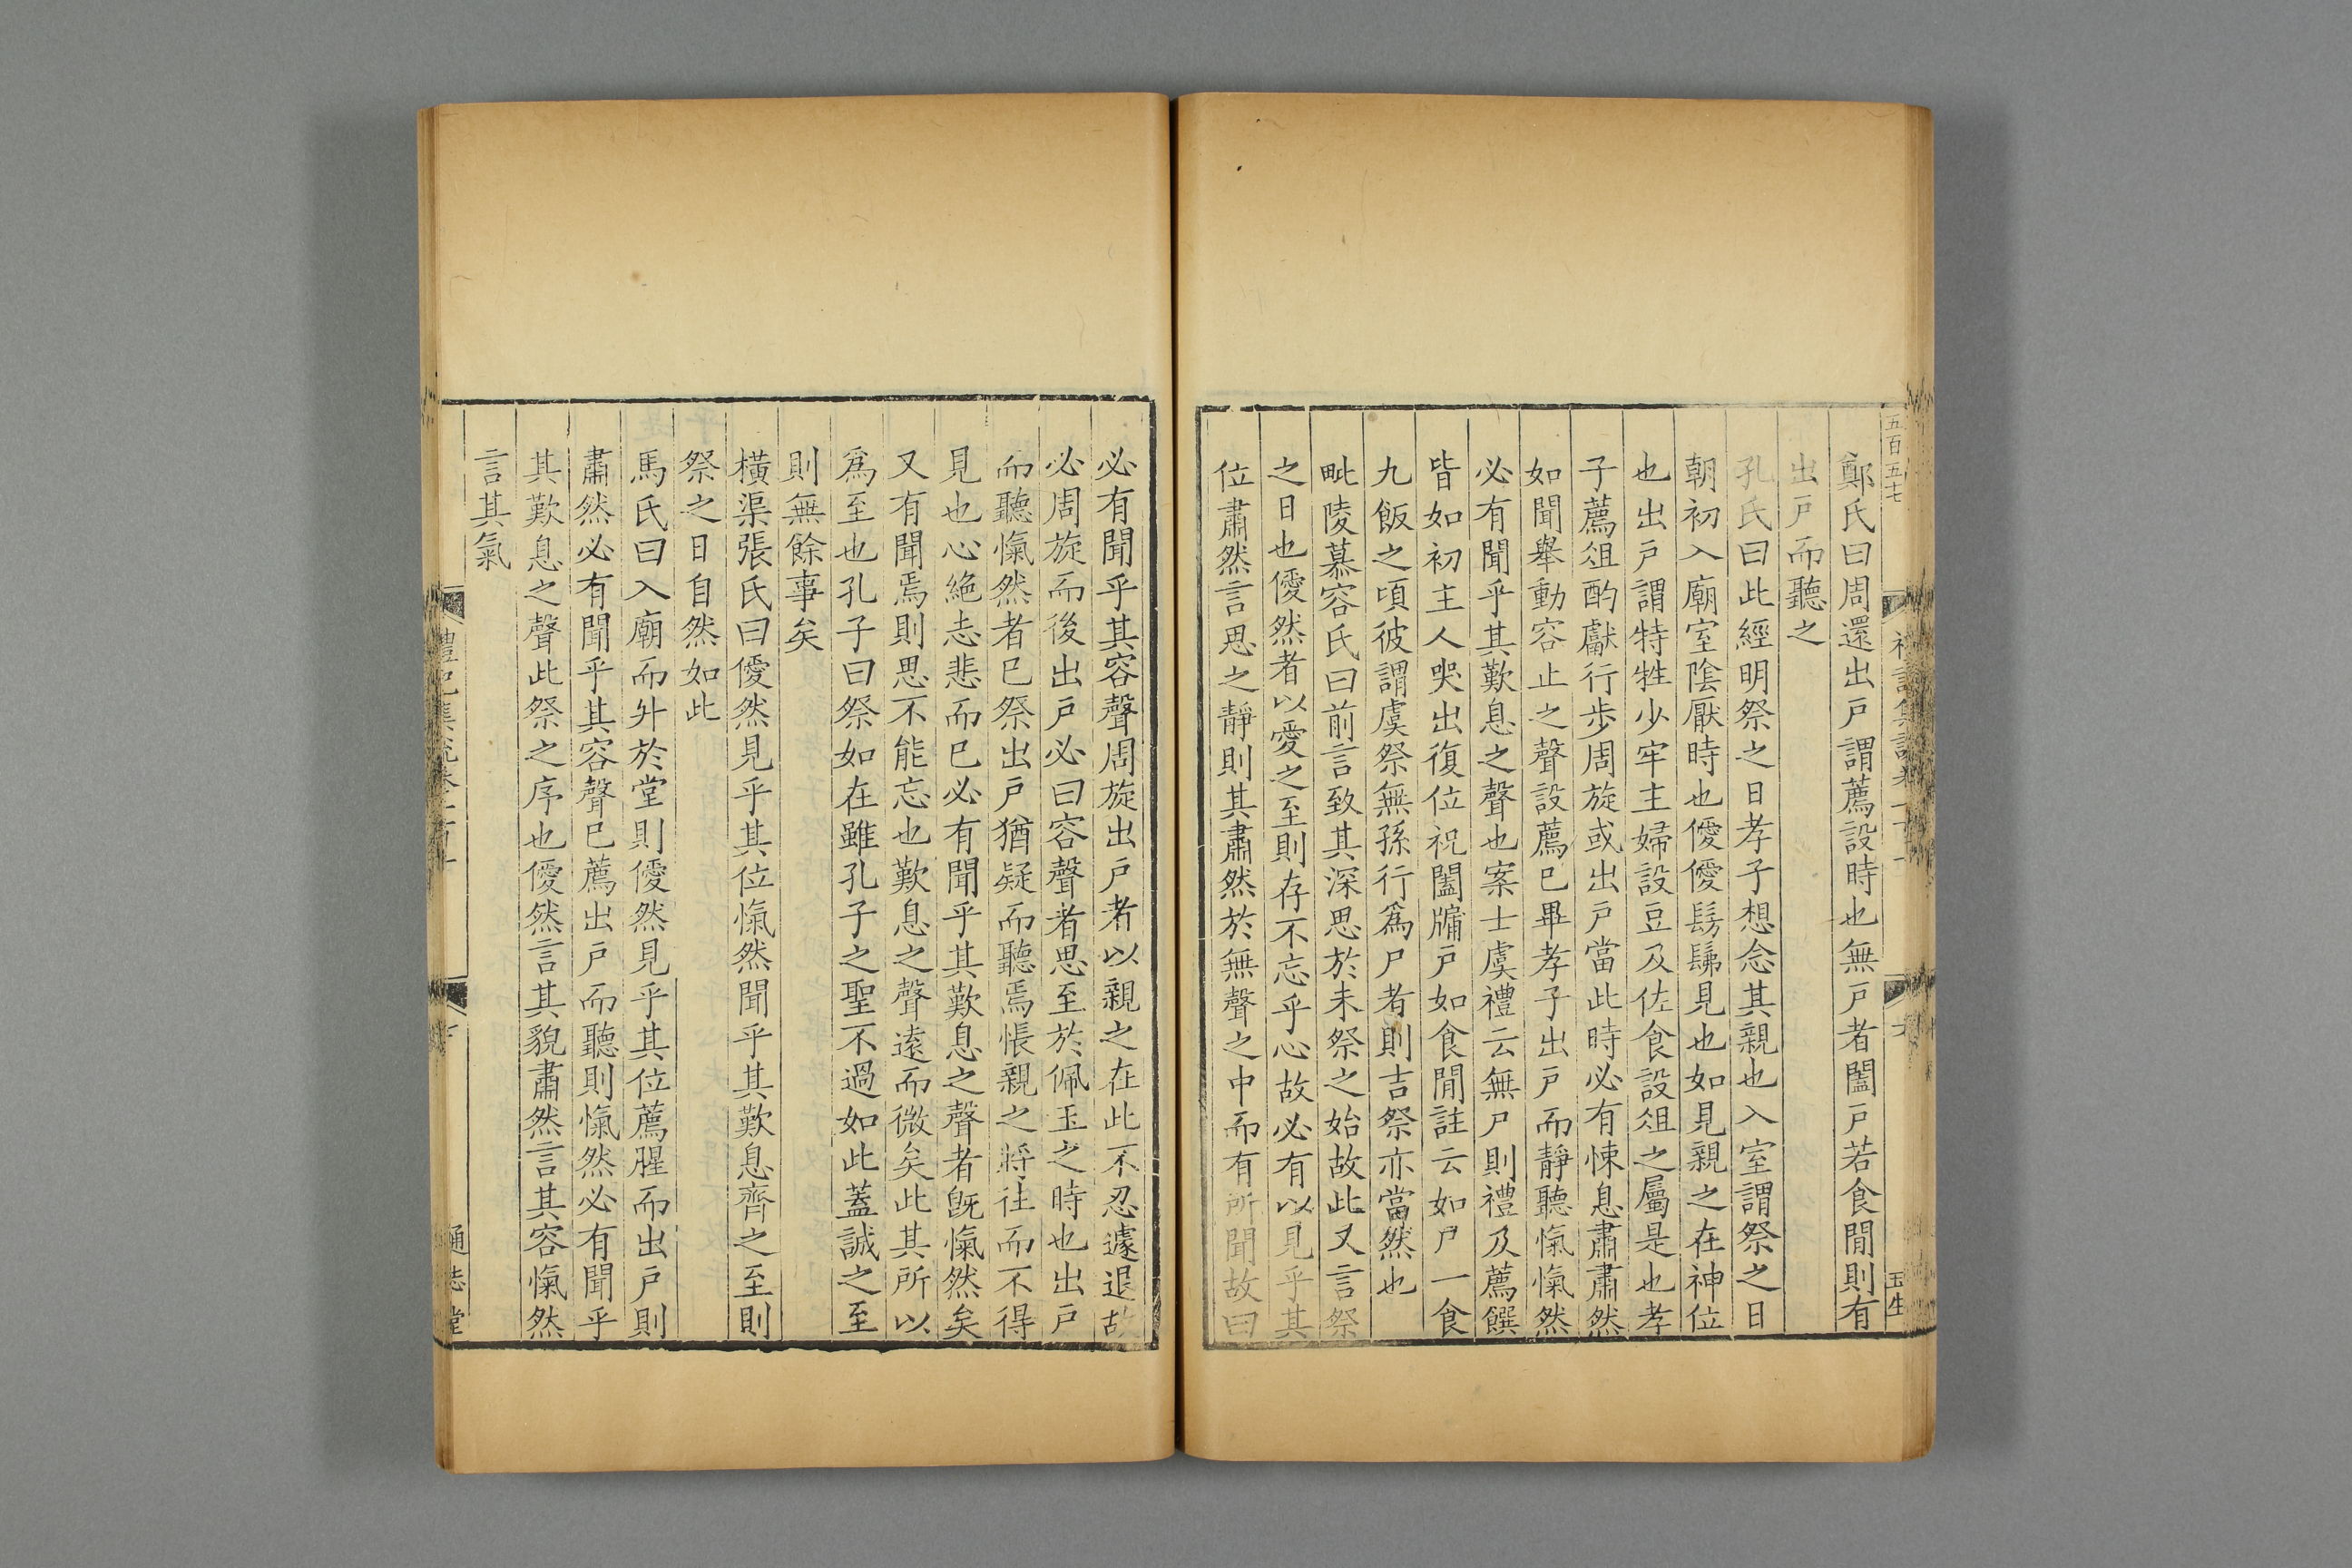 五百五七
鄭氏曰周還出戸謂薦設時也無戸者闔戸若食閒則有
出戸而聽之
孔氏曰此經明祭之日孝子想念其親也入室謂祭之日
朝初入廟室陰厭時也僾僾髣髴見也如見親之在神位
也出戸謂特牲少牢主婦設豆及佐食設俎之屬是也孝
子薦俎酌獻行步周旋或出戸當此時必有悚息肅肅然
如聞舉動容止之聲設薦已畢孝子出戸而靜聽愾愾然
必有聞乎其歎息之聲也案士虞禮云無尸則禮及薦饌
皆如初主人哭出復位祝闔牖戸如食閒註云如尸一食
九飯之頃彼謂虞祭無孫行爲尸者則吉祭亦當然也
毗陵慕容氏曰前言致其深思於未祭之始故此又言祭
之日也僾然者以愛之至則存不忘乎心故必有以見乎其
位肅然言思之靜則其肅然於無聲之中而有所聞故曰
必有聞乎其容聲周旋出戸者以親之在此不忍遽退故
必周旋而後出戸必曰容聲者思至於佩玉之時也出戸
而聽愾然者已祭出戸猶疑而聽焉悵親之將往而不得
見也心絕志悲而已必有聞乎其歎息之聲者旣愾然矣
又有聞焉則思不能忘也歎息之聲遠而微矣此其所以
爲至也孔子曰祭如在雖孔子之聖不過如此蓋誠之至
則無餘事矣
橫渠張氏曰僾然見乎其位愾然聞乎其歎息齊之至則
祭之日自然如此
馬氏曰入廟而升於堂則僾然見乎其位薦腥而出戸則
肅然必有聞乎其容聲已薦出戸而聽則愾然必有聞乎
其歎息之聲此祭之序也僾然言其貌肅然言其容愾然
言其氣
通志堂